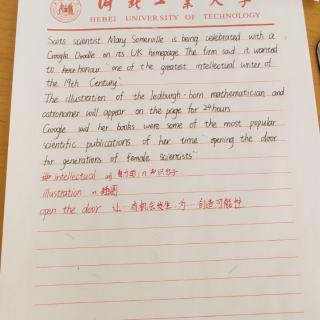 河北工业大学
HEBEI UNIVERSITY OF TECHNOLOGY
Scots scientist Mary Somerville is being celebrated with a
Google Doodle on its UK homepage. The firm said it wanted
to honour one of the greatest intellectual writer of
the 19th Century.
The illustration of the Jedburgh-born mathematician and
astronomer will appear on the page for 24hours.
Google said her books were some of the most popular
scientific publications of her time "opening the door
for generations of female scientists"
intellectual adj 智力的, n 知识分子
illustration n. 插图
open the door 让…有机会发生, 为…创造可能性